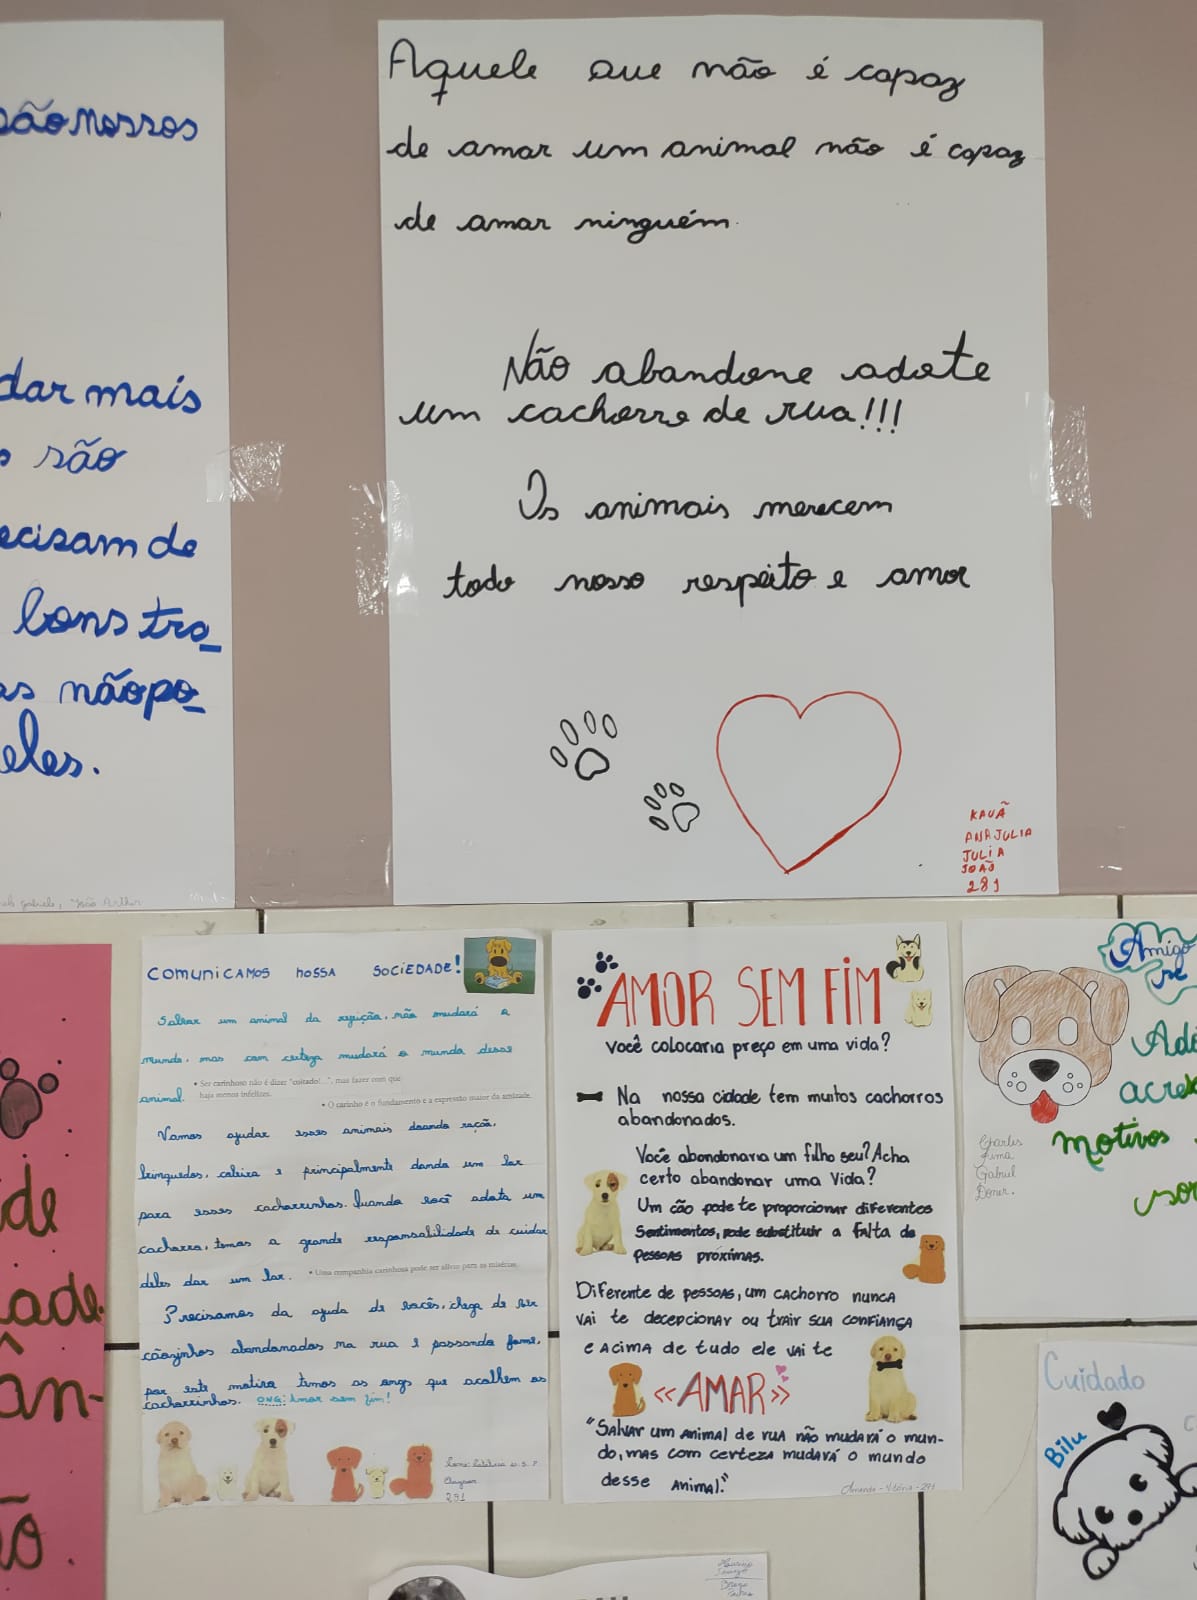 são nossos
dar mais
são
ecisam de
bons tra-
as não po-
eles.
Aquele que não é capaz
de amar um animal não é capaz
de amar ninguém.
Não abandone adote
um cachorro de rua!!!
Os animais merecem
todo nosso respeito e amor
KAUÃ
ANA JULIA
JULIA
JOÃO
281
gabriele, João Arthur
COMUNICAMOS NOSSA SOCIEDADE!
Salvar um animal da rejeição, não mudará o
mundo, mas com certeza mudará o mundo desse
animal.
• Ser carinhoso não é dizer "coitado!...", mas fazer com que
haja menos infelizes.
• O carinho é o fundamento e a expressão maior da amizade.
Vamos ajudar esses animais doando ração,
brinquedos, coleira e principalmente dando um lar
para esses cachorrinhos. Quando você adota um
cachorro, temos a grande responsabilidade de cuidar
deles dar um lar.
• Uma companhia carinhosa pode ser alívio para as misérias.
Precisamos da ajuda de vocês, chega de ver
cãozinhos abandonados na rua e passando fome,
por este motivo temos as ongs que acolhem os
cachorrinhos. ONG: Amor sem fim!
281
AMOR SEM FIM
Você colocaria preço em uma vida?
Na nossa cidade tem muitos cachorros
abandonados.
Você abondonaria um filho seu? Acha
certo abandonar uma vida?
Um cão pode te proporcionar diferentes
sentimentos, pode substituir a falta de
pessoas próximas.
Diferente de pessoas, um cachorro nunca
vai te decepcionar ou trair sua confiança
e acima de tudo ele vai te
«AMAR»
"Salvar um animal de rua não mudará o mun-
do, mas com certeza mudará o mundo
desse animal."
Amanda - Vitória - 281
Amigo
Ado
acre
motivos
Charles
Gabriel
ade
ade.
ân-
ão.
Cuidado
Bilu